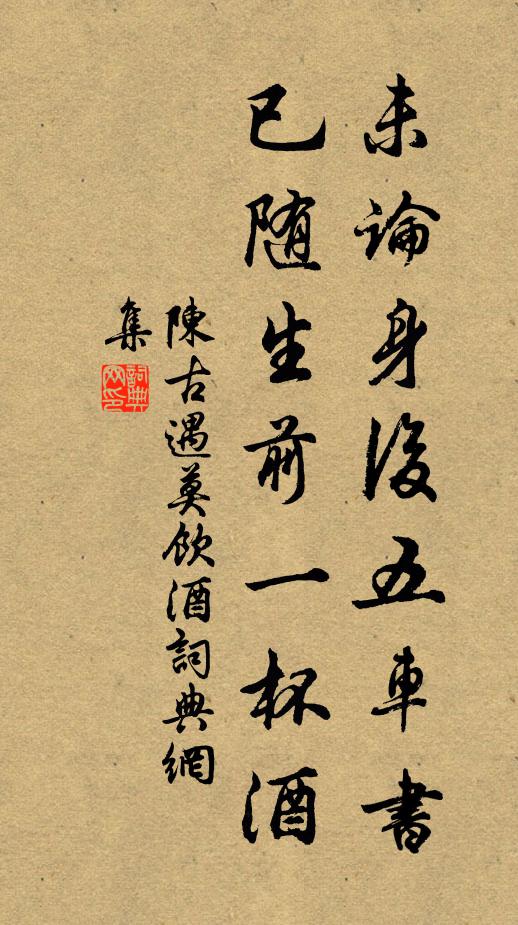 未論身後五車書
已随生前一杯酒
陳古遇莫飲酒詞典網
集
詞典
网印